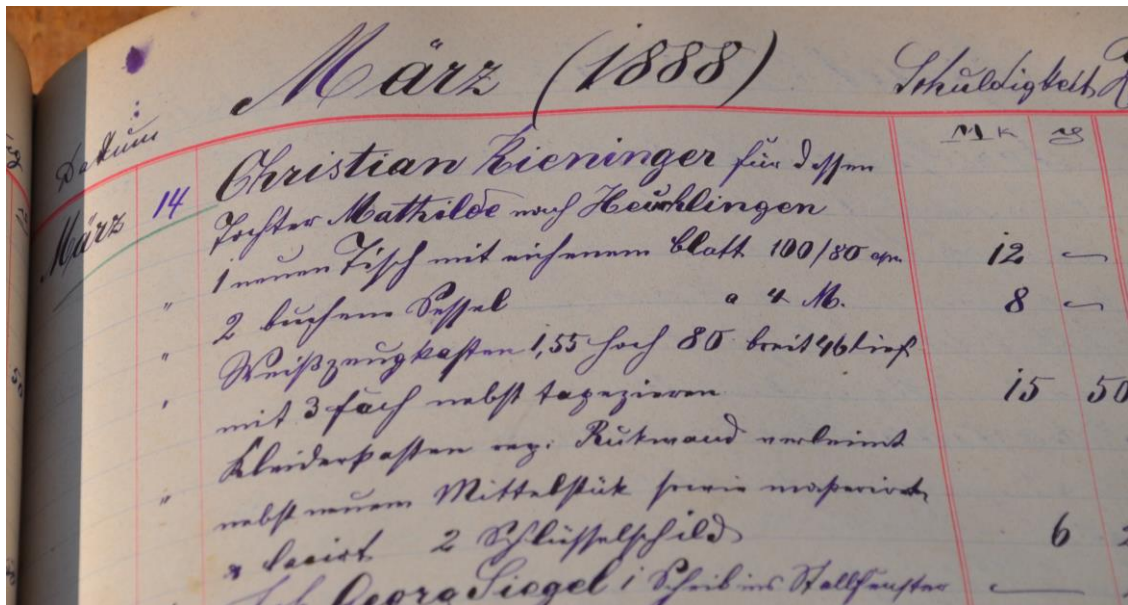 März (1888)
Schuldigkeit
Datum
Mk
März 14 Christian Kieninger für dessen
Tochter Mathilde nach Heuchlingen
1 neuen Tisch mit eichenem Blatt 100/80 12 —
" 2 buchene Sessel a 4 M. 8 —
" Weißzeugkasten 1,55 hoch 80 breit 46 tief
" mit 3 fach nebst tapezieren 15 50
Kleiderkasten rep: Rukwand verleimt
" nebst neuem Mittelstük sowie
lacirt 2 Schlüsselschild 6
Georg Siegel 1 Scheib ins Stallfenster —